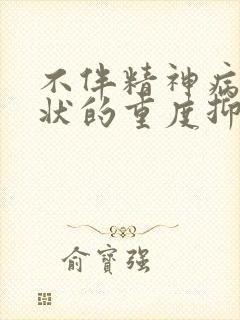 不伴精神病
状的重度抑
俞寶强